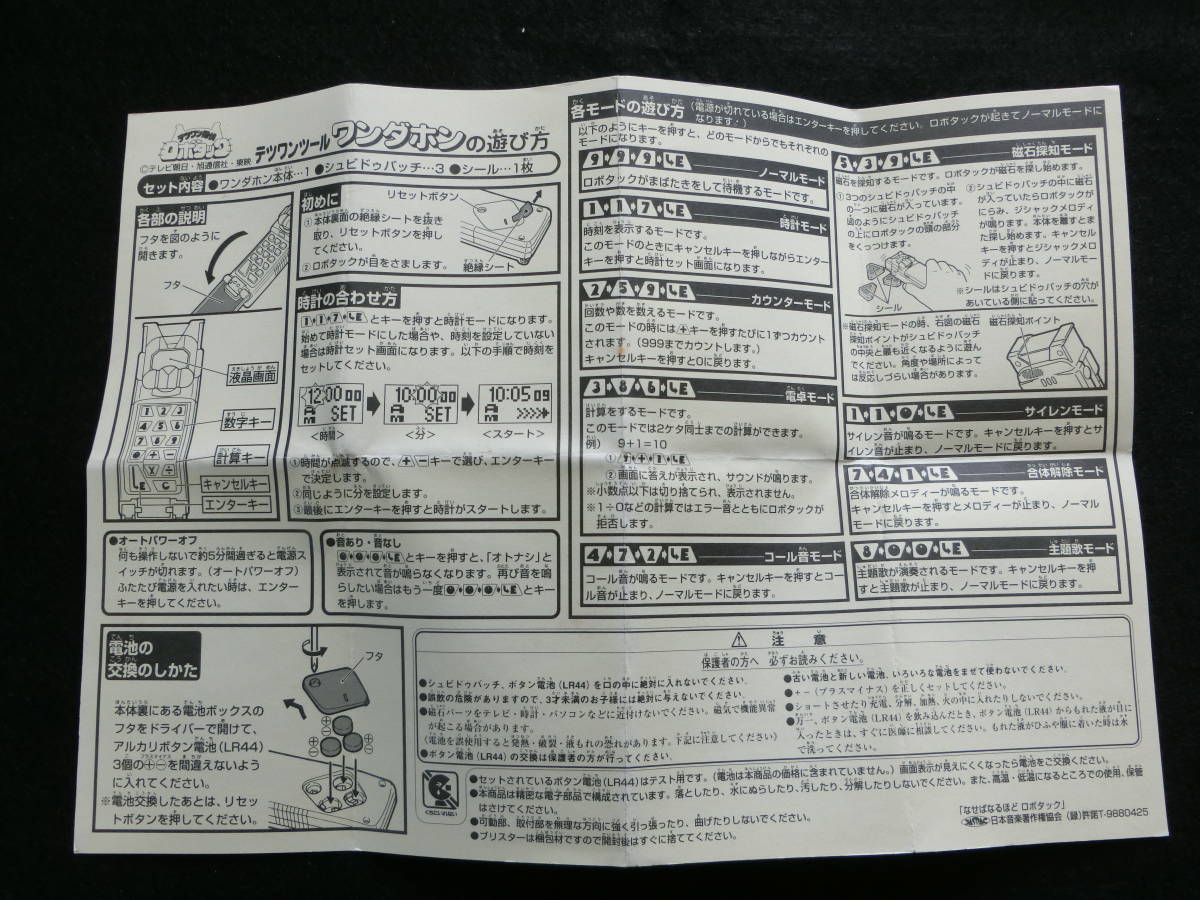 テツワン探偵
ロボタック
©テレビ朝日・旭通信社・東映
テツワンツール ワンダホンの遊び方
セット内容 ●ワンダホン本体…1 ●シュビドゥバッチ…3 ●シール…1枚
各部の説明
フタを図のように
開きます。
フタ
液晶画面
数字キー
計算キー
キャンセルキー
エンターキー
初めに
リセットボタン
①本体裏面の絶縁シートを抜き
取り、リセットボタンを押し
てください。
②ロボタックが目をさまします。
絶縁シート
時計の合わせ方
1・1・7・E とキーを押すと時計モードになります。
始めて時計モードにした場合や、時刻を設定していない
場合は時計セット画面になります。以下の手順で時刻を
セットしてください。
12:00 00
AM SET
10:00 00
AM SET
10:05 09
AM
<時間>
<分>
<スタート>
①時間が点滅するので、+ − キーで選び、エンターキー
で決定します。
②同じように分を設定します。
③最後にエンターキーを押すと時計がスタートします。
●オートパワーオフ
何も操作しないで約5分間過ぎると電源ス
イッチが切れます。(オートパワーオフ)
ふたたび電源を入れたい時は、エンター
キーを押してください。
●音あり・音なし
0・0・0・E とキーを押すと、「オトナシ」と
表示されて音が鳴らなくなります。再び音を鳴
らしたい場合はもう一度 0・0・0・E とキー
を押します。
各モードの遊び方 (電源が切れている場合はエンターキーを押してください。ロボタックが起きてノーマルモードに
なります。)
以下のようにキーを押すと、どのモードからでもそれぞれの
モードになります。
9・9・9・E ノーマルモード
ロボタックがまばたきをして待機するモードです。
1・1・7・E 時計モード
時刻を表示するモードです。
このモードのときにキャンセルキーを押しながらエンター
キーを押すと時計セット画面になります。
2・5・9・E カウンターモード
回数や数を数えるモードです。
このモードの時には + キーを押すたびに1ずつカウント
されます。(999までカウントします。)
キャンセルキーを押すと0に戻ります。
3・8・6・E 電卓モード
計算をするモードです。
このモードでは2ケタ同士までの計算ができます。
例) 9+1=10
① 9・+・1・E
②画面に答えが表示され、サウンドが鳴ります。
※小数点以下は切り捨てられ、表示されません。
※1÷0などの計算ではエラー音とともにロボタックが
拒否します。
4・7・2・E コール音モード
コール音が鳴るモードです。キャンセルキーを押すとコー
ル音が止まり、ノーマルモードに戻ります。
5・3・9・E 磁石探知モード
磁石を探知するモードです。ロボタックが磁石を探し始めます。
①3つのシュビドゥバッチの中
の一つに磁石が入っています。
図のようにシュビドゥバッチ
の上にロボタックの頭の部分
をくっつけます。
シール
②シュビドゥバッチの中に磁石
が入っていたらロボタックが
にらみ、ジシャックメロディ
が鳴ります。本体を離すとま
た探し始めます。キャンセル
キーを押すとジシャックメロ
ディが止まり、ノーマルモー
ドに戻ります。
※シールはシュビドゥバッチの穴が
あいている側に貼ってください。
※磁石探知モードの時、右図の磁石
探知ポイントがシュビドゥバッチ
の中央と最も近くなるように遊ん
でください。角度や場所によって
は反応しづらい場合があります。
磁石探知ポイント
1・1・0・E サイレンモード
サイレン音が鳴るモードです。キャンセルキーを押すとサ
イレン音が止まり、ノーマルモードに戻ります。
7・4・1・E 合体解除モード
合体解除メロディーが鳴るモードです。
キャンセルキーを押すとメロディーが止まり、ノーマル
モードに戻ります。
8・0・0・E 主題歌モード
主題歌が演奏されるモードです。キャンセルキーを押
すと主題歌が止まり、ノーマルモードに戻ります。
電池の
交換のしかた
フタ
本体裏にある電池ボックスの
フタをドライバーで開けて、
アルカリボタン電池(LR44)
3個の⊕⊖を間違えないよう
に入れてください。
※電池交換したあとは、リセッ
トボタンを押してください。
⚠ 注意
保護者の方へ 必ずお読みください。
●シュビドゥバッチ、ボタン電池(LR44)を口の中に絶対に入れないでください。
●誤飲の危険がありますので、3才未満のお子様には絶対に与えないでください。
●磁石パーツをテレビ・時計・パソコンなどに近付けないでください。磁気で機能異常
が起こる場合があります。
(電池を誤使用すると発熱・破裂・液もれの恐れがあります。下記に注意してください)
●ボタン電池(LR44)の交換は保護者の方が行ってください。
●古い電池と新しい電池、いろいろな電池をまぜて使わないでください。
●+−(プラスマイナス)を正しくセットしてください。
●ショートさせたり充電、分解、加熱、火の中に入れたりしないでください。
●万一、ボタン電池(LR44)を飲み込んだとき、ボタン電池(LR44)からもれた液が目に
入ったときは、すぐに医師に相談してください。もれた液がひふや服に着いた時は水
で洗ってください。
くちにいれない
●セットされているボタン電池(LR44)はテスト用です。(電池は本商品の価格に含まれていません。)画面表示が見えにくくなったら電池をご交換ください。
●本商品は精密な電子部品で構成されています。落としたり、水にぬらしたり、汚したり、分解したりしないでください。また、高温・低温になるところでの使用、保管
はさけてください。
●可動部、取付部を無理な方向に強く引っ張ったり、曲げたりしないでください。
●ブリスターは梱包材ですので開封後はすぐに捨ててください。
「なせばなるほど ロボタック」
日本音楽著作権協会(録)許諾T-9880425